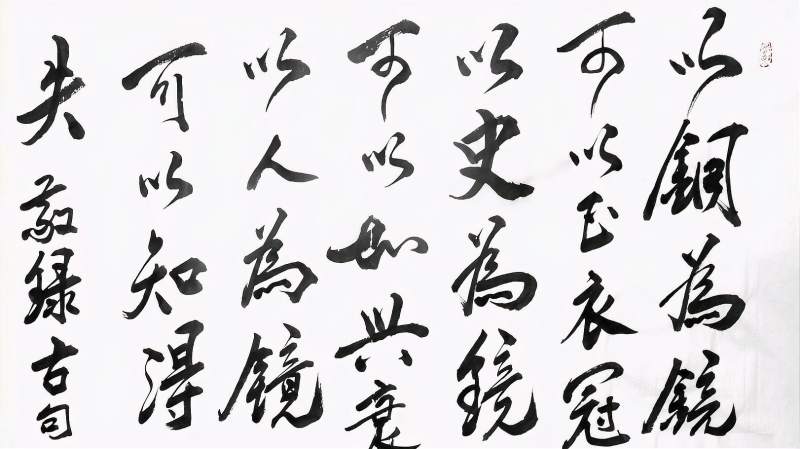 以銅為鏡
可以正衣冠
以史為鏡
可以知興衰
以人為鏡
可以知得
失 敬録古句